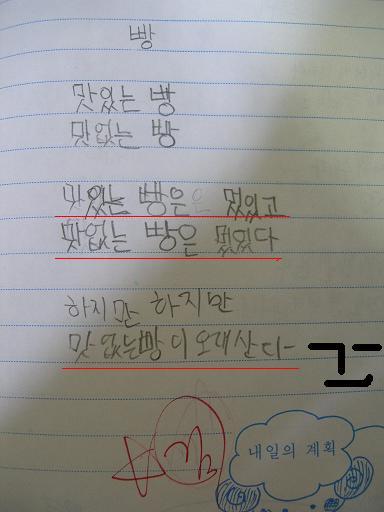 빵
맛있는 빵
맛없는 빵
맛있는 빵은 멌있고
맛없는 빵은 멌있다
하지만 하지만
맛 없는빵이 오래산다
굳
내일의 계획